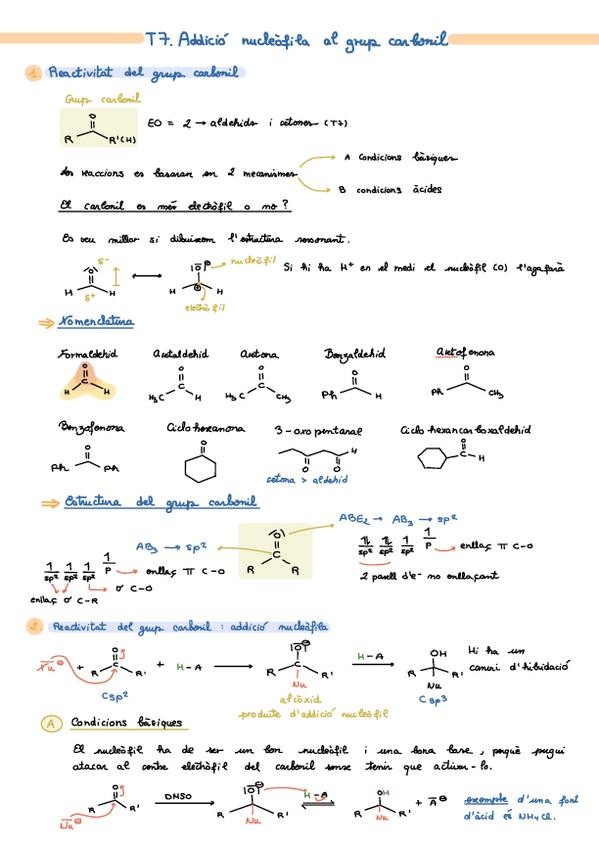 T7. Addició nucleòfila al grup carbonil
1 Reactivitat del grup carbonil
Grup carbonil
O
R R'(H)
EO = 2 → aldehids i cetones (T7)
Les reaccions es basaran en 2 mecanismes
A Condicions bàsiques
B condicions àcides
El carbonil es més electròfil o no?
Es veu millor si dibuixem l'estructura ressonant.
δ-
O
H H
δ+
↔
|O|⊖
H ⊕ H
nucleòfil
electròfil
Si hi ha H+ en el medi el nucleòfil (O) l'agafarà
⇒ Nomenclatura
Formaldehid Acetaldehid Acetona Benzaldehid Acetofenona
O O O O O
H C H H3C C H H3C C CH3 Ph H Ph CH3
Benzofenona Ciclohexanona 3-oxo pentanal Ciclohexancarboxaldehid
O O O
Ph Ph H O O C H
cetona > aldehid
⇒ Estructura del grup carbonil
AB3 → sp2
O
C
R R
ABE2 → AB3 → sp2
1 1 1 1
sp2 sp2 sp2 P
enllaç π C-O
σ C-O
enllaç σ C-R
1l 1l 1 1
sp2 sp2 sp2 P
enllaç π C-O
2 parell d'e- no enllaçant
2 Reactivitat del grup carbonil : addició nucleòfila
Nu⊖ + R C R' + H-A → R C R' H-A → R R'
O |O|⊖ OH
Nu Nu
Csp2 alcòxid Csp3
producte d'addició nucleòfil
Hi ha un
canvi d'hibidació
A Condicions bàsiques
El nucleòfil ha de ser un bon nucleòfil i una bona base, perquè pugui
atacar al centre electròfil del carbonil sense tenir que activar-lo.
O DMSO |O|⊖ H-A OH
R R' → R R' ⇌ R R' + A⊖
Nu⊖ Nu Nu
exemple d'una font
d'àcid és NH4Cl.